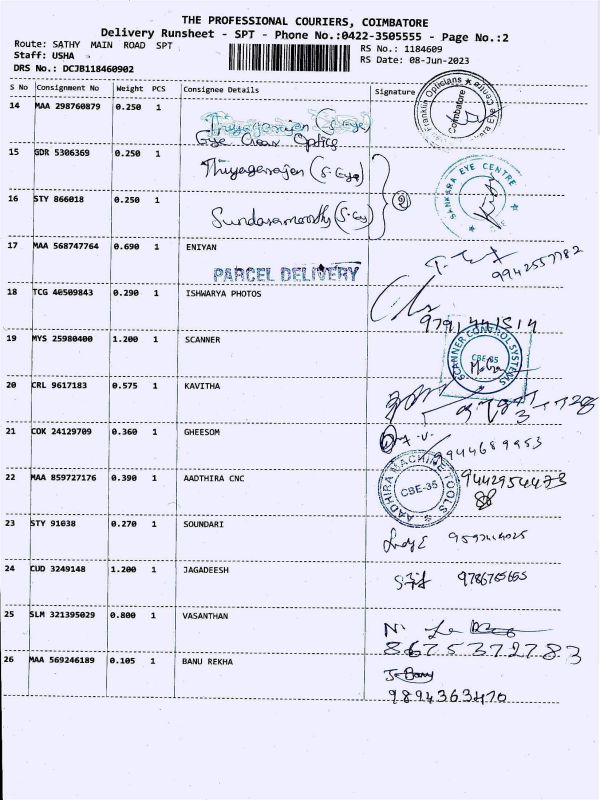 THE PROFESSIONAL COURIERS, COIMBATORE
Delivery Runsheet - SPT - Phone No.:0422-3505555 - Page No.:2
Route: SATHY MAIN ROAD SPT
Staff: USHA
DRS No.: DCJB118460902
RS No.: 1184609
RS Date: 08-Jun-2023
S No Consignment No Weight PCS Consignee Details Signature
14 MAA 298760879 0.250 1
Thiyagarajan (S.Eye)
Eye Care Optics
Franklin Opticians
Coimbatore
15 GDR 5306369 0.250 1 Thiyagarajan (S.Eye)
SANKARA EYE CENTRE
16 STY 866018 0.250 1 Sundaramoorthy (S.Eye)
2
17 MAA 568747764 0.690 1 ENIYAN
9942557782
PARCEL DELIVERY
18 TCG 40509843 0.290 1 ISHWARYA PHOTOS
9791441514
19 MYS 25980400 1.200 1 SCANNER
SCANNER CONTROL SYSTEMS
CBE-35
20 CRL 9617183 0.575 1 KAVITHA
21 COK 24129709 0.360 1 GHEESOM
9944689953
22 MAA 859727176 0.390 1 AADTHIRA CNC
AADHIRA MACHINE TOOLS
CBE-35
9442954473
23 STY 91038 0.270 1 SOUNDARI
24 CUD 3249148 1.200 1 JAGADEESH
9786765665
25 SLM 321395029 0.800 1 VASANTHAN
N.
8675372783
26 MAA 569246189 0.105 1 BANU REKHA
J. Banu
9894363470